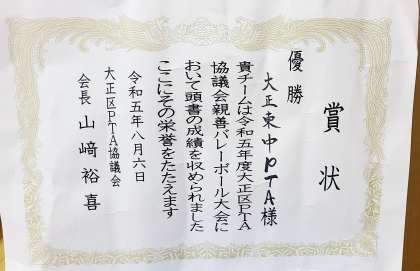 賞状
優勝
大正東中PTA様
貴チームは令和五年度大正区PTA
協議会親善バレーボール大会に
おいて頭書の成績を収められました
ここにその栄誉をたたえます
令和五年八月六日
大正区PTA協議会
会長 山﨑裕喜